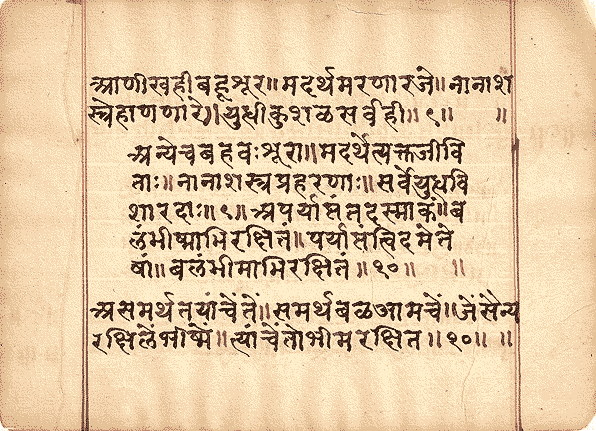 आणीखही बहू शूर॥ मदर्थ मरणा रजे॥ नाना श
स्त्रे हाणणारे॥ युधी कुशळ सर्वही॥९॥ ॥
अन्येच बहवः शूरा॥ मदर्थे त्यक्त जीवि
ताः॥ नाना शस्त्र प्रहरणाः॥ सर्वे युध वि
शारदाः॥९॥ अपर्याप्तं तदस्माकं॥ ब
लं भीष्माभिरक्षितं॥ पर्याप्तं त्विदमेते
षां॥ बलं भीमाभिरक्षितं॥१०॥ ॥
असमर्थ तयांचें तें॥ समर्थ बळ आमचें॥ जें सैन्य
रक्षिलें भीष्में॥ त्यांचें तों भीम रक्षित॥१०॥ ॥